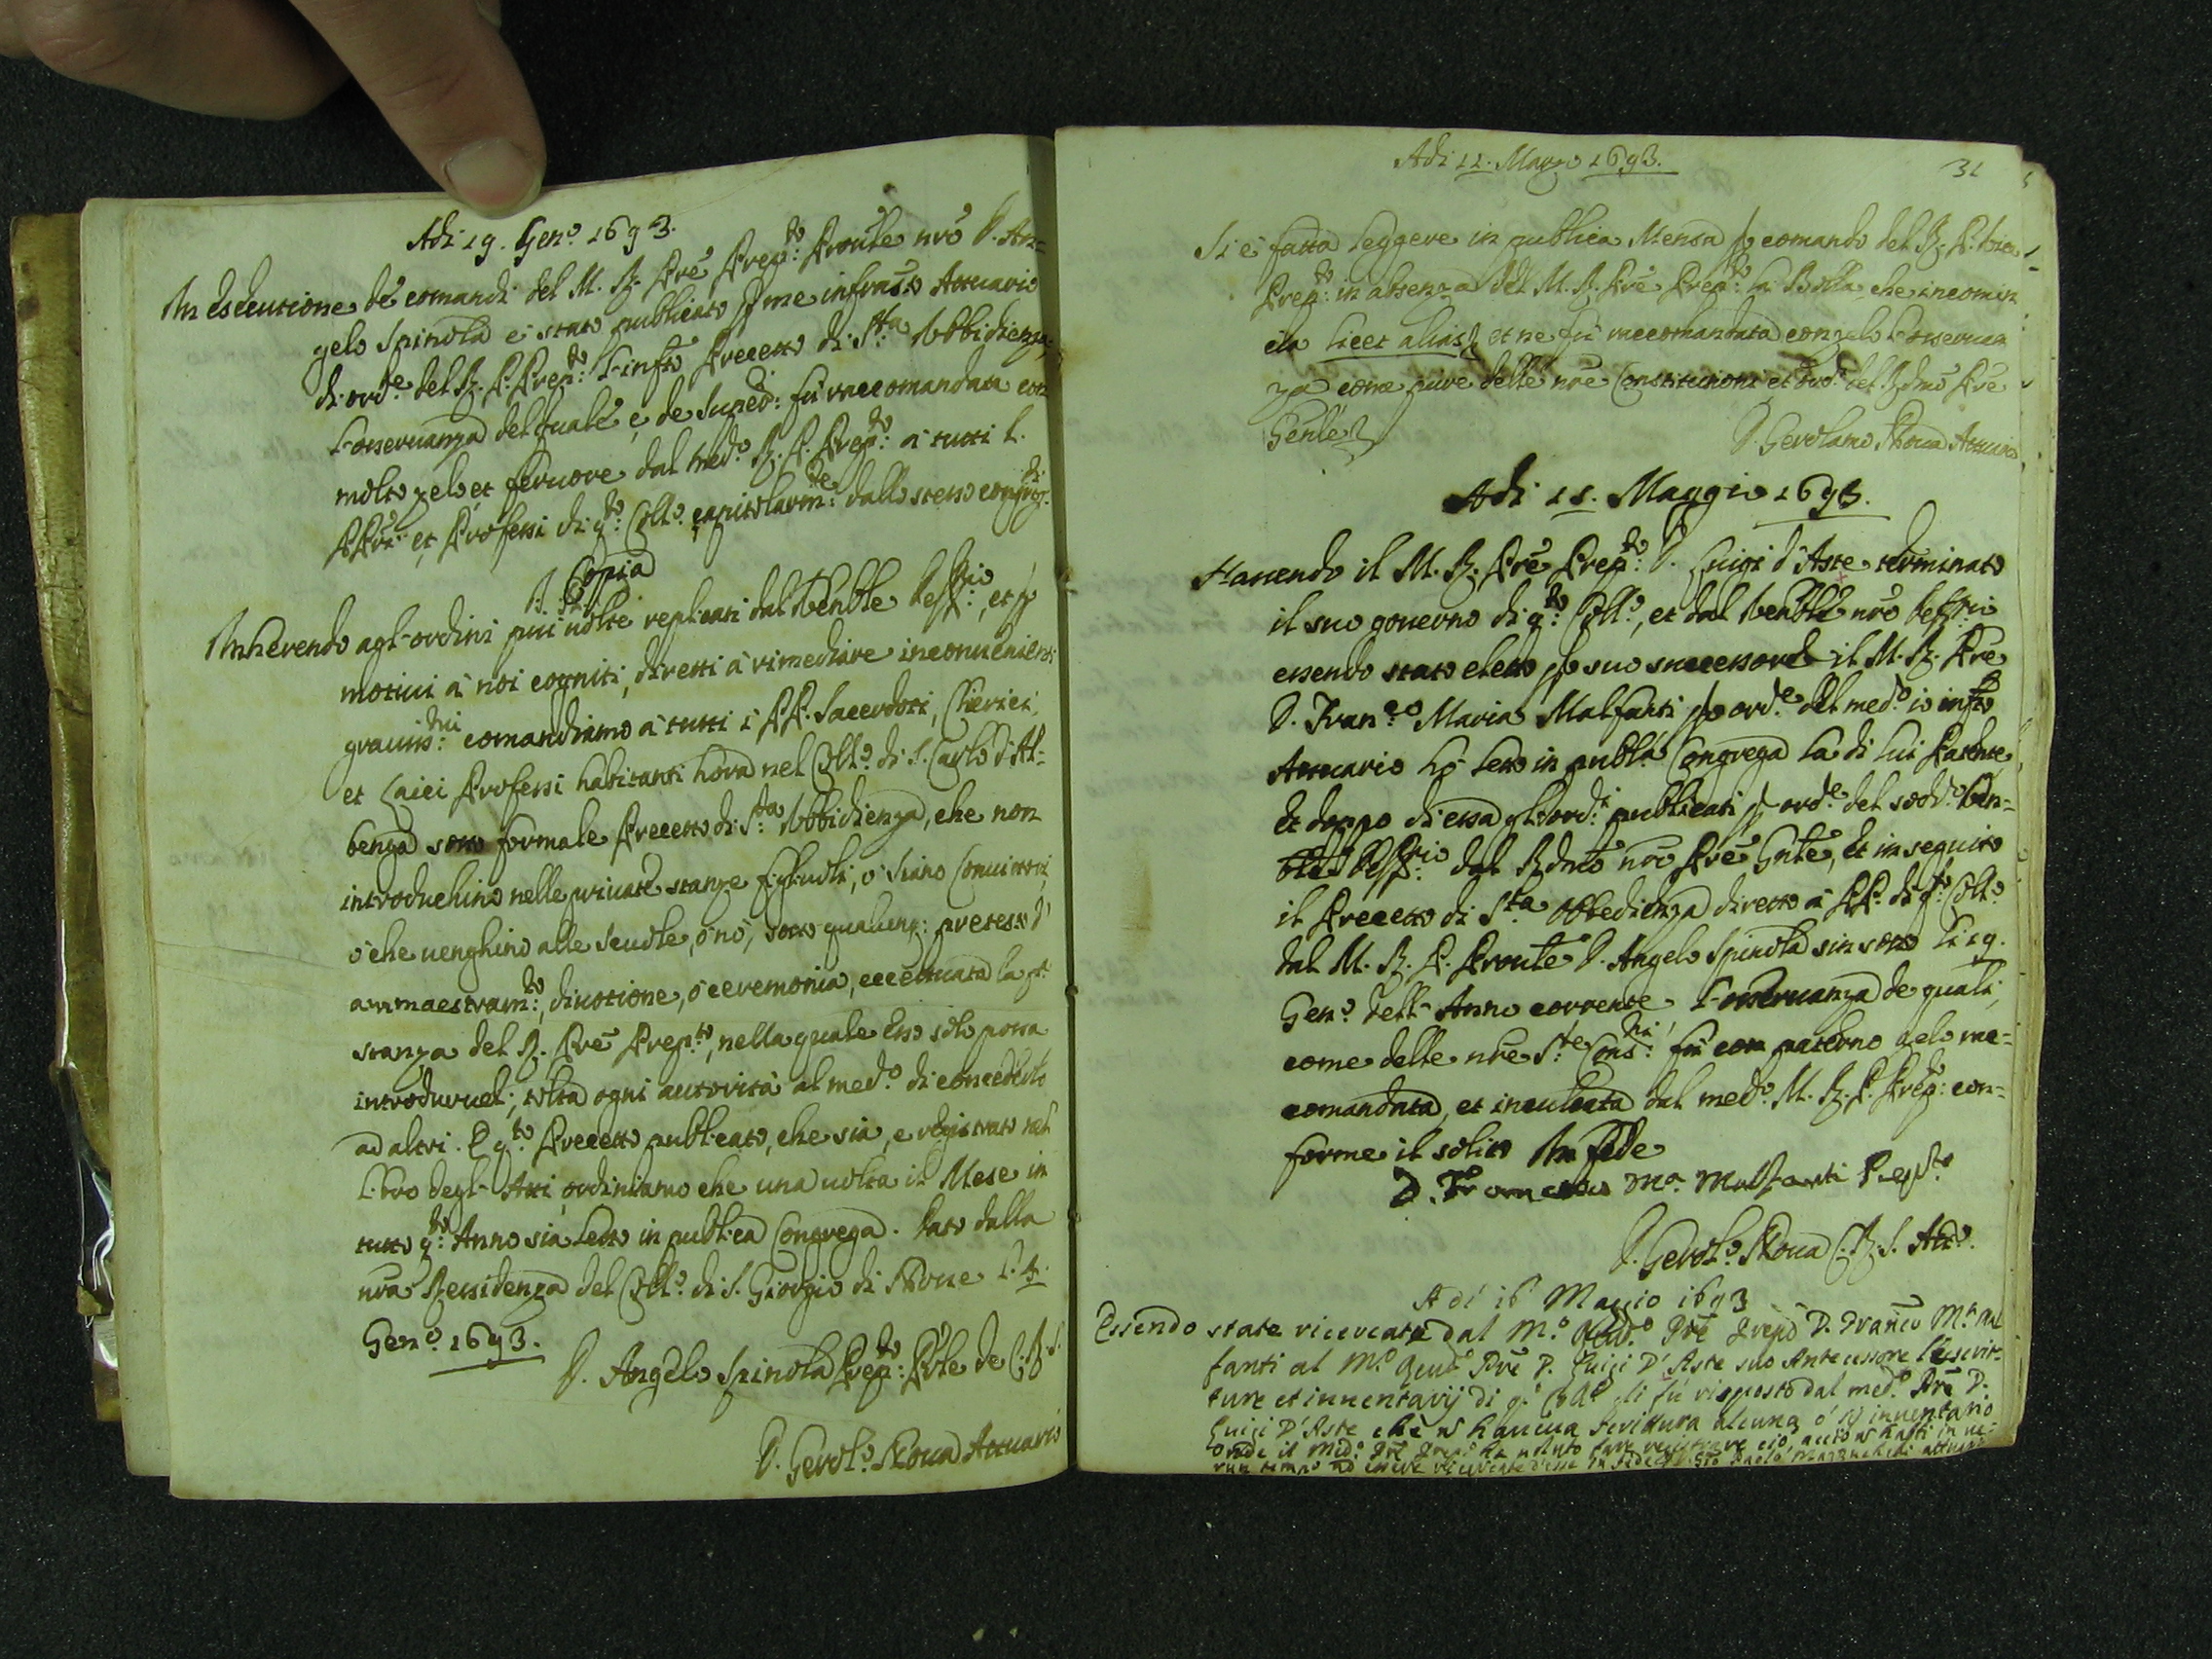 Adi 19. Gen.o 1693.
In esecutione de comandi del M. R. Prē Prep.to Prouīle nrō D. An=
gelo Spinola è stato publicato p me infratto Attuario
di ord.e del R. P. Prep.to l'infrto Precetto di S.ta Vbbidienza,
l'osseruanza del quale, e de fù raccomandata con
molto zelo, et feruore dal med.o R. P. Prep.to à tutti li
PPri et Professi di q.to Coll.o capitolarm.te dallo stesso congreg.ti
Copia
Inherendo agl'ordini piu uolte replicati dal Venble Deff.rio, et p
motiui à noi cogniti, diretti à rimediare inconuenienti
grauis.mi comandiamo à tutti i PP. Sacerdoti, Chierici,
et Laici Professi habitanti hora nel Coll.o di S. Carlo d'Al=
benga sotto formale Precetto di S.ta Vbbidienza, che non
introduchino nelle priuate stanze figliuoli, ò siano Conuittori,
ò che uenghino alle Scuole, ò nò, sotto qualunq: pretesto d'
ammaestram.to, diuotione, ò ceremonia, eccettuata la p.a
stanza del R. Prē Prep.to, nella quale Esso solo possa
introdurueli, tolta ogni autorità al med.o di concederlo
ad altri. E q.to Precetto publicato, che sia, e registrato nel
Libro degl'Atti, ordiniamo che una uolta il Mese in
tutto q.to Anno sia Letto in publica Congrega. Dato dalla
nrā Ressidenza del Coll.o di S. Giorgio di Noue li 4.
Gen.o 1693.
D. Angelo Spinola Prep.to Prle de C. R. S.
D. Gerol.o Roua Attuario
Adi 11. Marzo 1693.
31
Si è fatta leggere in publica Mensa p comando del R. P. Vice
Prep.to in absenza del M. R. Prē Prep.to la Bolla, che incomin
cia licet alias, et ne fù raccomandata con zelo l'osseruan
za come pure delle nrē Constitutioni, et ord.i del Rdmō Prē
Genle
D. Gerolamo Roua Attuario
Adi 15. Maggio 1693.
Hauendo il M. R. Prē Prep.to D. Luigi d'Aste terminato
il suo gouerno di q.to Coll.o, et dal Venble nrō Deff.rio
essendo stato eletto p suo successore il M. R. Prē
D. Fran.co Maria Malfanti p ord.e del med.o io infrto
Attuario hò letto in publa Congrega la di lui Patente,
Et doppo di essa gli ord.i publicati p ord.e del sodd.o Ven=
ble Deff.rio dal Rdmō nrō Prē Gnle, Et in seguito
il Precetto di S.ta Obbedienza diretto à PP. di q.to Coll.o
dal M. R. P. Prouīle D. Angelo Spinola sin sotto li 19.
Gen.o dell'Anno corrente. L'osseruanza de quali,
come delle nrē S.te Cons.ni fù con paterno zelo rac=
comandata, et inculcata dal med.o M. R. P. Prep: con=
forme il solito In fede
D. Francesco M.a Malfanti Prep.to
D. Gerol.o Roua C. R. S. Att.o
A di 16 Maggio 1693
Essendo state ricercate dal M.o Reud.o Prē Prep.o D. Franco M.a Mal
fanti al M.o Reud.o Prē D. Luigi D'Aste suo Antecessore le scrit=
ture et inuentarij di q.o Coll.o li fù risposto dal med.o Prē D.
Luigi D'Aste che nō haueua scrittura alcuna ò sij inuentario
onde il Med.o Prē Prep.o ha uoluto fare registrare ciò, acciò nō habbi in ue=
run tempo ad essere ricercate d'esse In fede D. Gio Paolo attuario